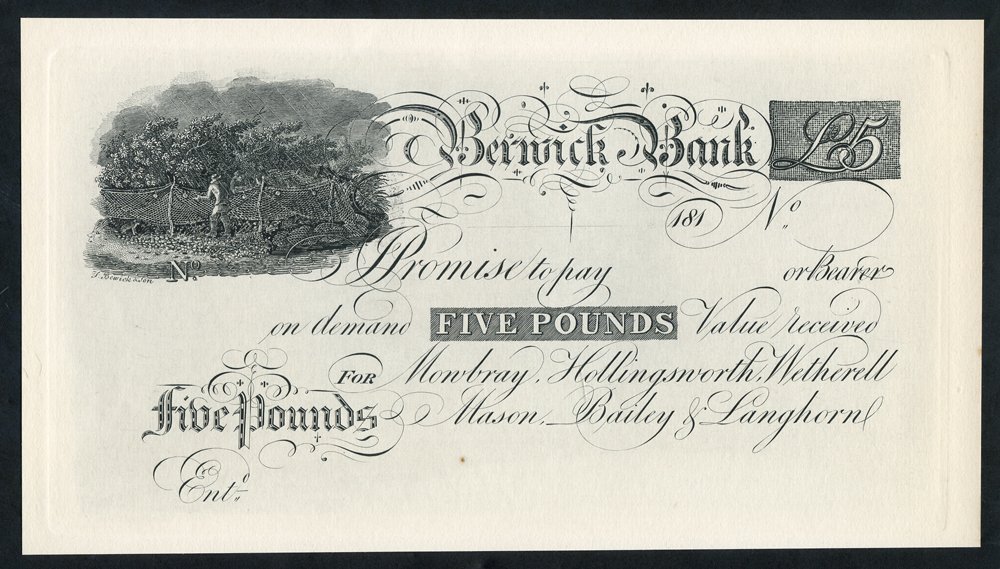 Berwick Bank £5
181 No.
No.
T. Bewick & Son
I Promise to pay or Bearer
on demand FIVE POUNDS Value received
FOR Mowbray, Hollingsworth, Wetherell
Five Pounds Mason, Bailey & Langhorn
Entd.